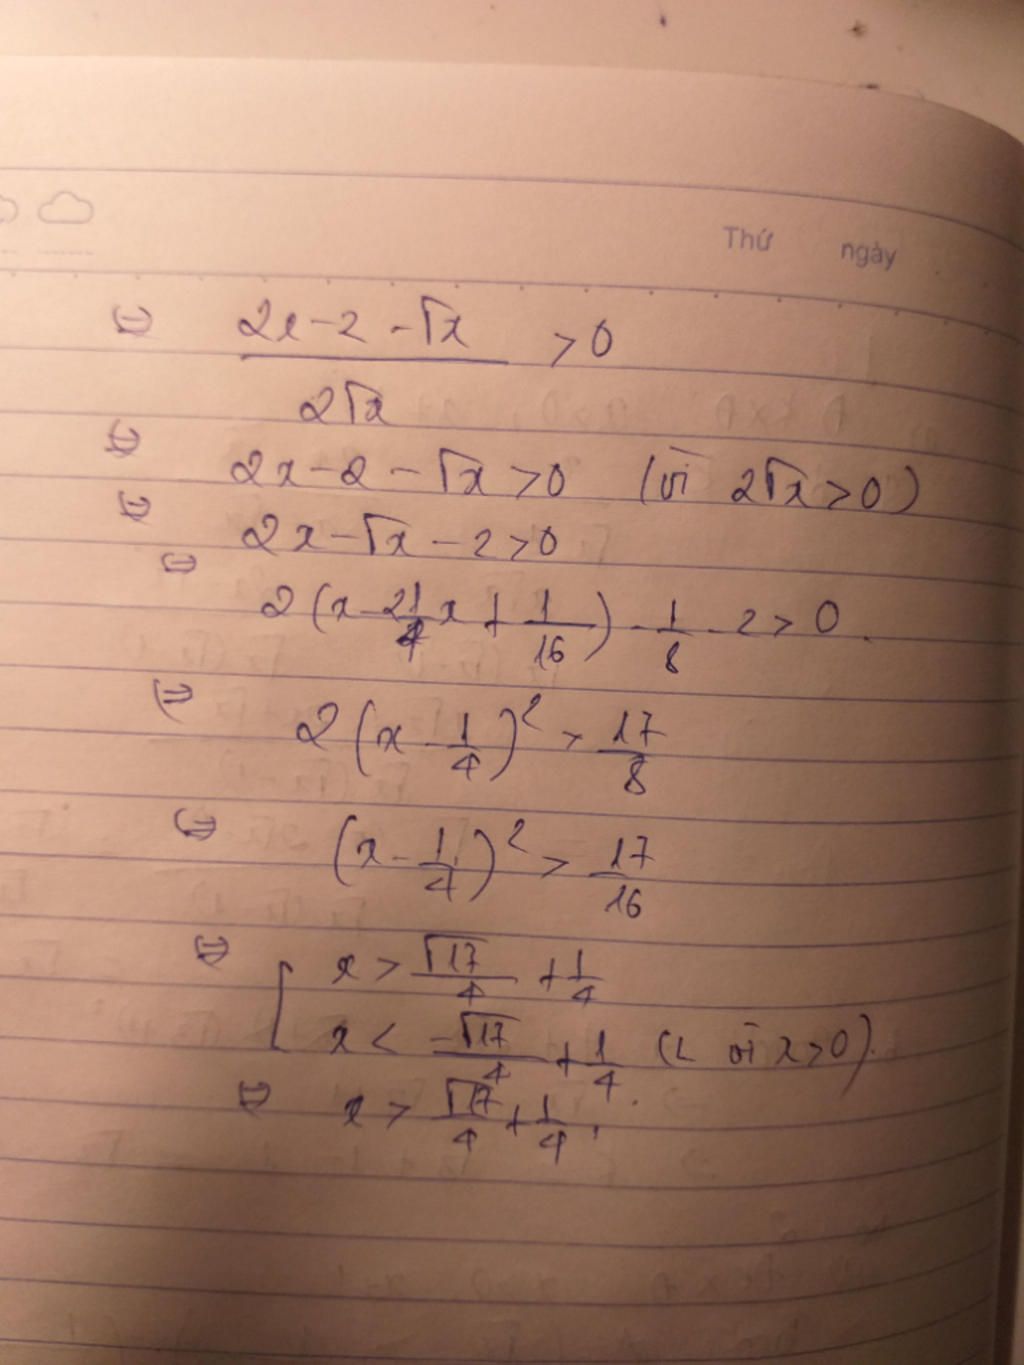 Thứ ngày
⇔ (2x - 2 - √x)/(2√x) > 0
⇔ 2x - 2 - √x > 0 (vì 2√x > 0)
⇔ 2x - √x - 2 > 0
⇔ 2(x - 2 1/4 x + 1/16) - 1/8 - 2 > 0.
⇔ 2(x - 1/4)² > 17/8
⇔ (x - 1/4)² > 17/16
⇔ [ x > √17/4 + 1/4
x < -√17/4 + 1/4 (L vì x > 0).
⇔ x > √17/4 + 1/4.